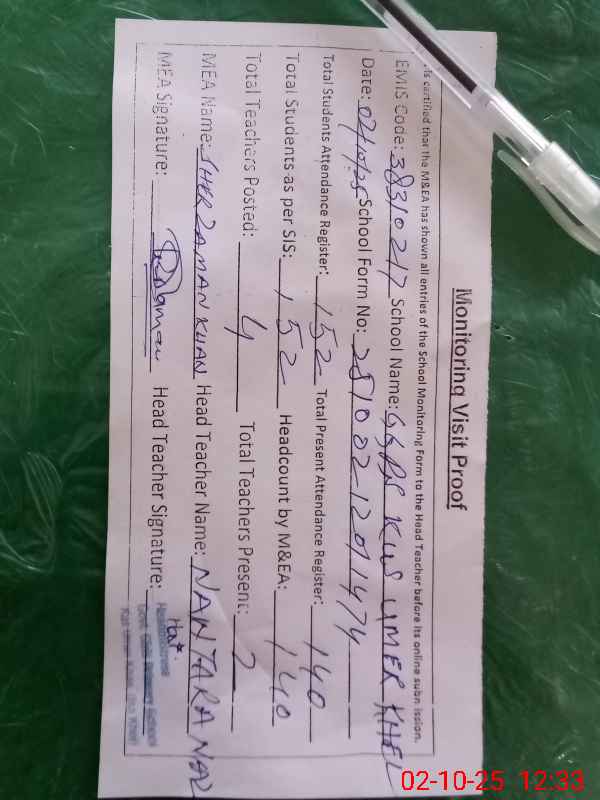 Monitoring Visit Proof
is certified that the M&EA has shown all entries of the School Monitoring Form to the Head Teacher before its online submission.
EMIS Code: 38310217 School Name: GGPS KUS UMER KHEL
Date: 02/10/25 School Form No: 2510021201474
Total Students Attendance Register: 152 Total Present Attendance Register: 140
Total Students as per SIS: 152 Headcount by M&EA: 140
Total Teachers Posted: 4 Total Teachers Present: 2
MEA Name: SHER ZAMAN KHAN Head Teacher Name: NANTARA NAZ
MEA Signature: Head Teacher Signature:
Headmistress
Govt. Girls Primary School
02-10-25 12:33